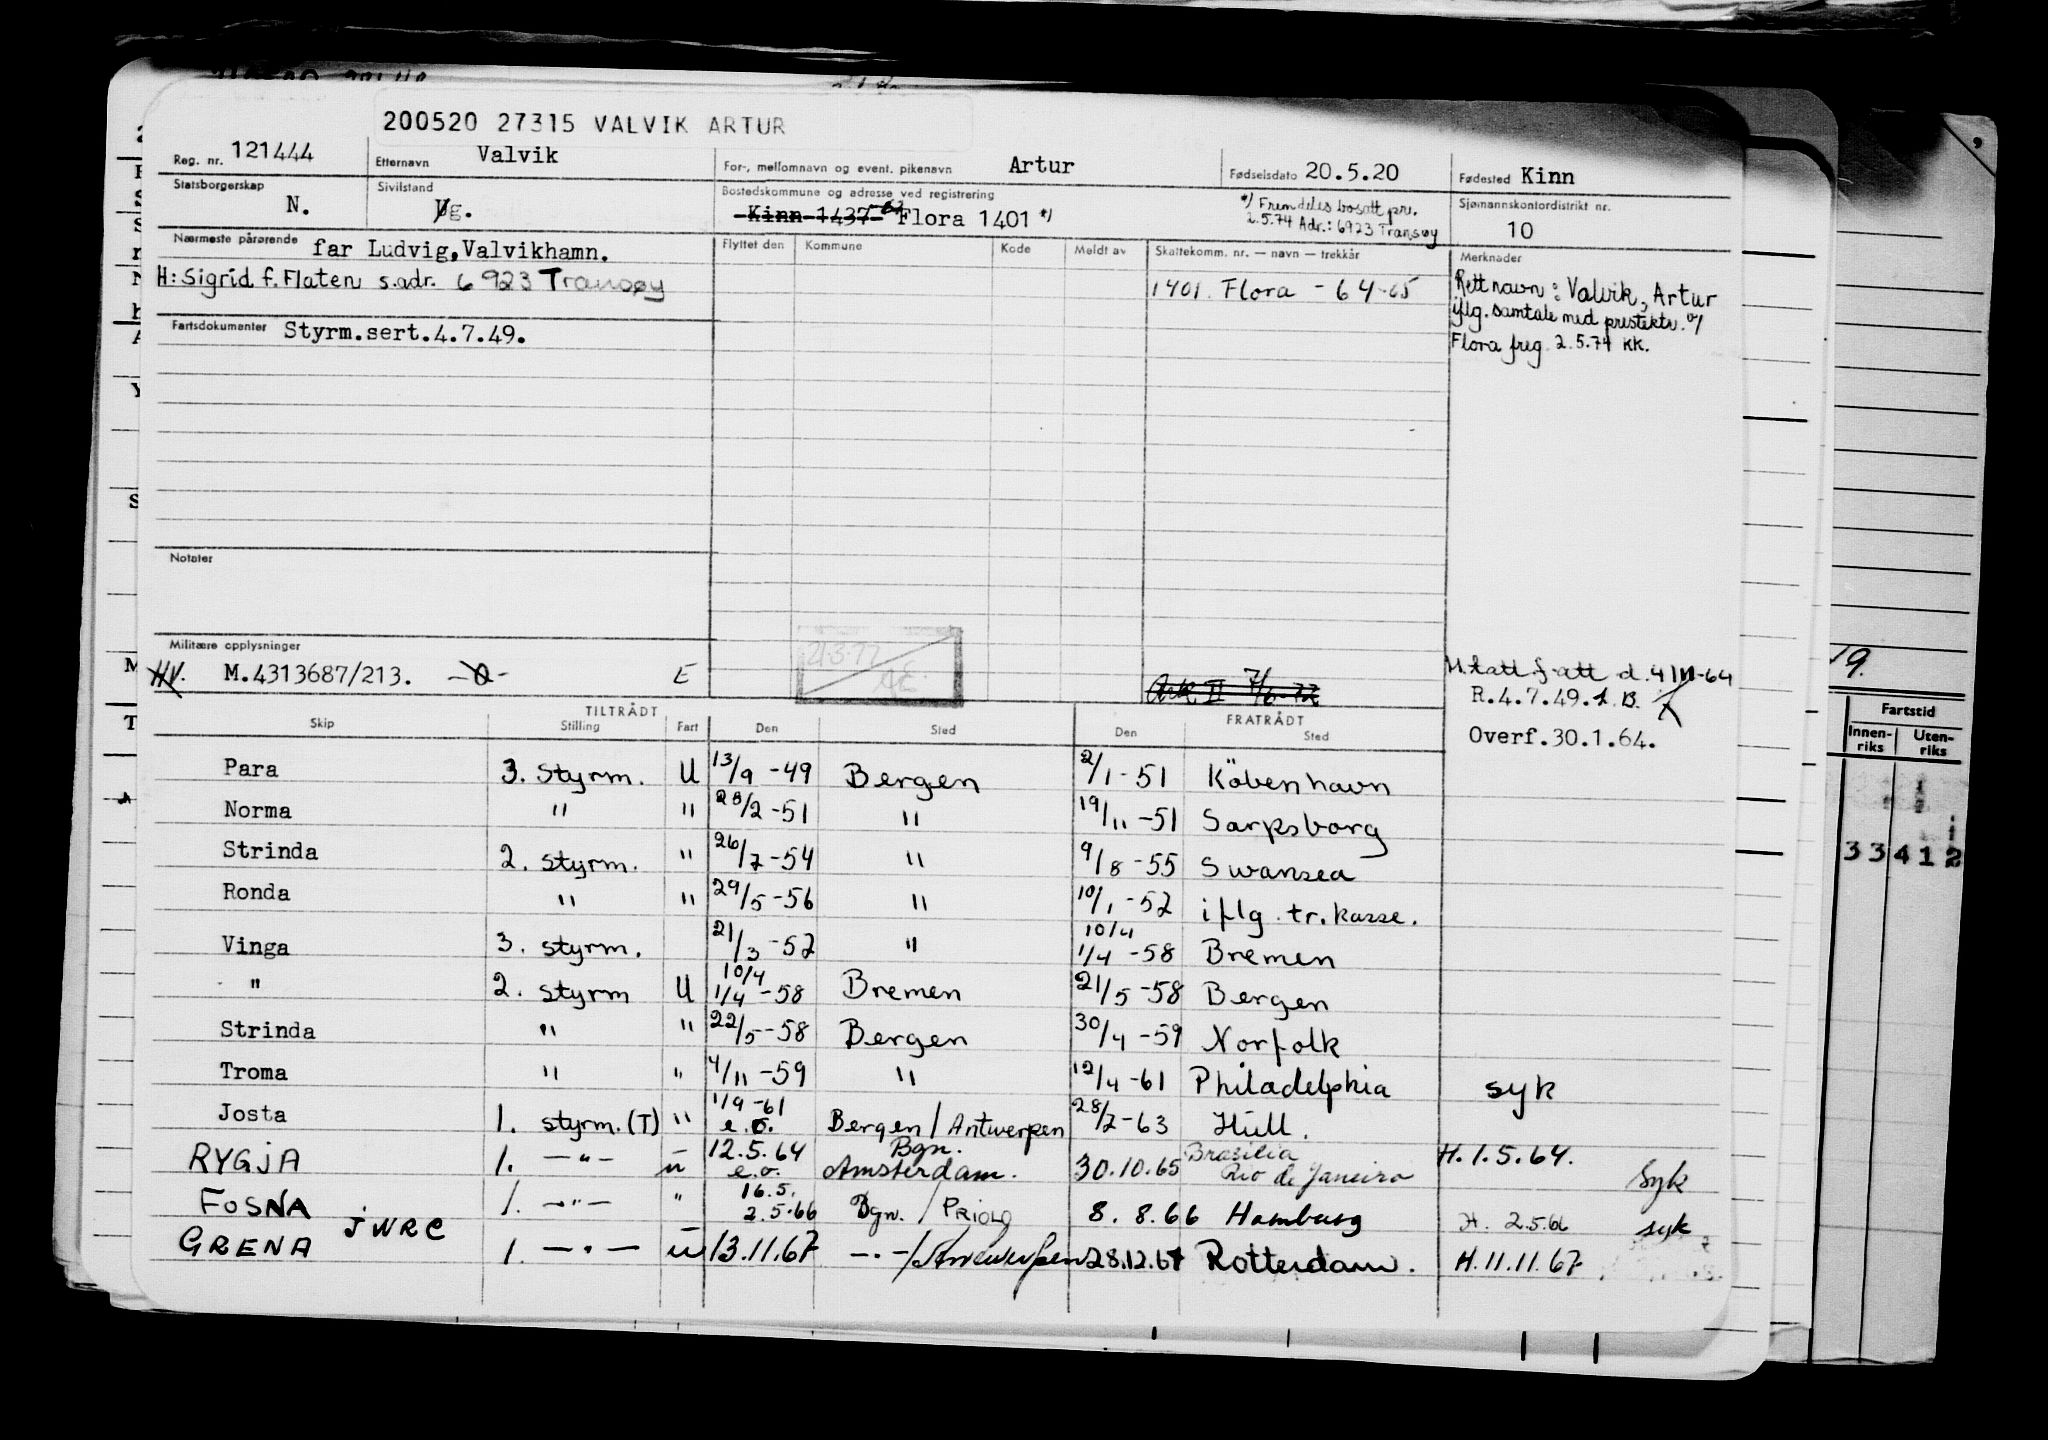 200520 27315 VALVIK ARTUR
Reg. nr. 121444 Etternavn Valvik For-, mellomnavn og event. pikenavn Artur Fødselsdato 20.5.20 Fødested Kinn
Statsborgerskap N. Sivilstand g. Bostedskommune og adresse ved registrering Kinn 1437 Flora 1401 *) *) Fremdeles bosatt pr. Sjømannskontordistrikt nr. 10
2.5.74 Adr.: 6923 Transøy
Nærmeste pårørende far Ludvig, Valvikhamn. Flyttet den Kommune Kode Meldt av Skattekomm. nr. — navn — trekkår Merknader
H: Sigrid f. Flaten s.adr. 6923 Transøy 1401. Flora - 64-65 Rett navn: Valvik, Artur
iflg. samtale med prestektr. v/
Fartsdokumenter Styrm.sert.4.7.49. Flora freg. 2.5.74 KK.
Notater
Militære opplysninger 21.3.77
HV. M.4313687/213. -O- E Ark II 7/6-72 f-att d. 4/III-64
R.4.7.49. B.
Overf.30.1.64.
TILTRÅDT FRATRÅDT
Skip Stilling Fart Den Sted Den Sted
Para 3. styrm. U 13/9 -49 Bergen 2/1-51 Köbenhavn
Norma " " 28/2-51 " 19/11-51 Sarpsborg
Strinda 2. styrm. " 26/7-54 " 9/8-55 Swansea
Ronda " " 29/5-56 " 10/1-57 iflg. tr.kasse.
Vinga 3. styrm. 21/3-57 " 10/4 1/4-58 Bremen
" 2. styrm U 10/4 1/4-58 Bremen 21/5-58 Bergen
Strinda " " 22/5-58 Bergen 30/4-59 Norfolk
Troma " " 4/11-59 " 12/4-61 Philadelphia syk
Josta 1. styrm.(T) " 1/9-61 e.o. Bergen/Antwerpen 28/7-63 Hull.
RYGJA 1. —"— u 12.5.64 e.o. Bgn. Amsterdam. 30.10.65 Brasilia Rio de Janeiro H.1.5.64. Syk
FOSNA 1. —"— " 16.5. 2.5.66 Bgn. / PRIOLO 8. 8.66 Hamburg H. 2.5.66 syk
GRENA JWRC 1. —"— u 13.11.67 —"—/Antwerpen 28.12.67 Rotterdam. H.11.11.67
19.
Fartstid
Innen-riks Uten-riks
3 3 4 1 2